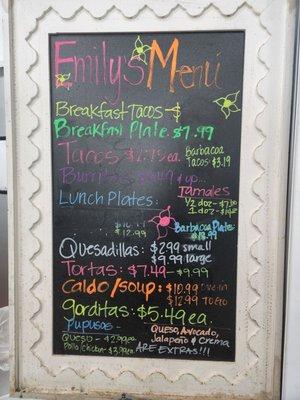 Emily's Menu
Breakfast Tacos - $
Breakfast Plate $7.99
Tacos $2.75 ea.
Barbacoa
Tacos $3.19
Burritos
& up...
Lunch Plates:
Tamales
1/2 doz -
1 doz -
$12.99
Barbacoa Plate:
Quesadillas: $2.99 small
$9.99 large
Tortas: $7.49 - $9.99
Caldo/Soup: $10.99 Dine in
$12.99 To Go
gorditas: $5.49 ea.
Pupusas -
Queso - $2.99 ea
Pollo/Chicken - $3.99 ea.
Queso, Avocado,
Jalapeño & Crema
Are Extras!!!